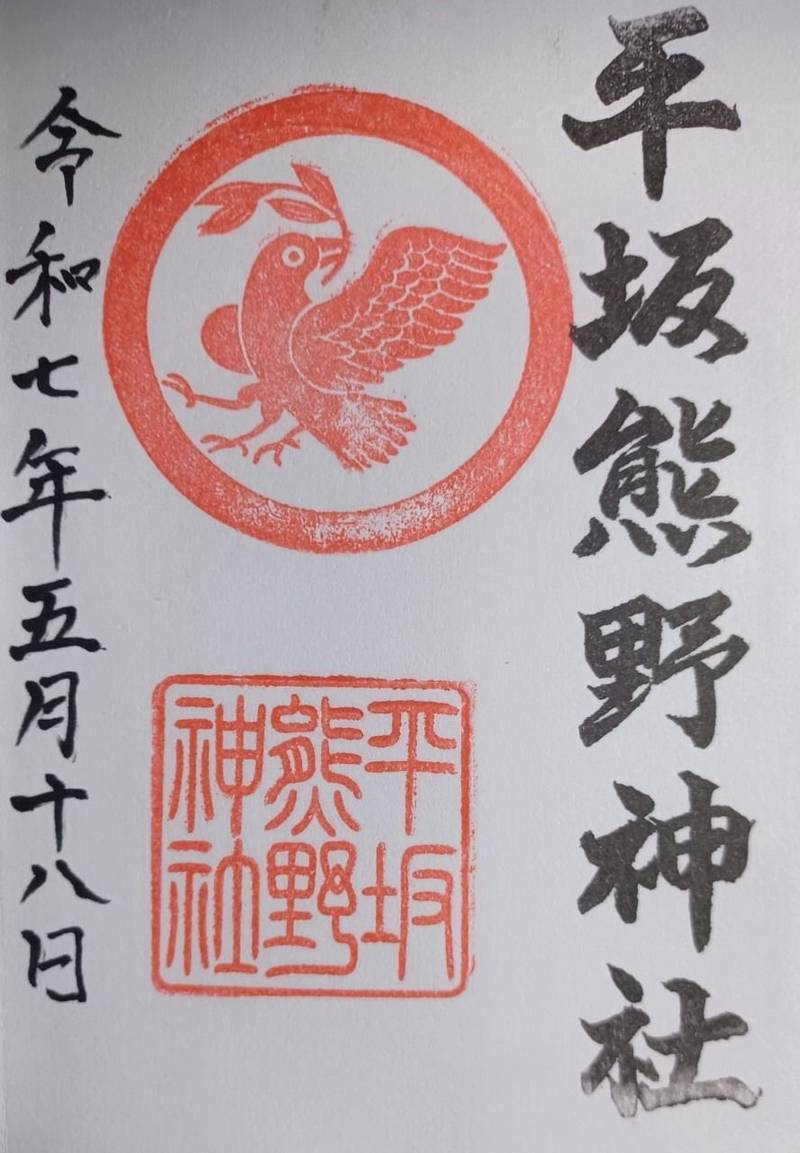 平坂熊野神社
平坂
熊野
神社
令和七年五月十八日